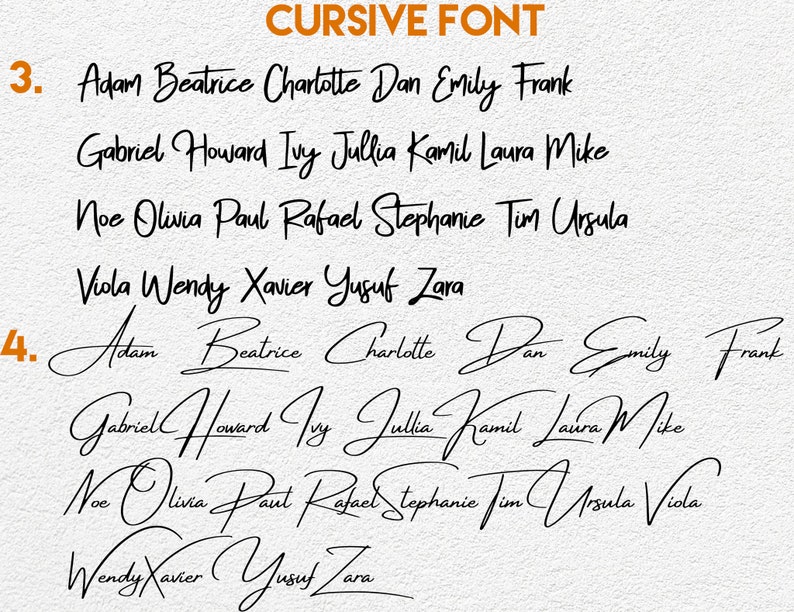 CURSIVE FONT
3. Adam Beatrice Charlotte Dan Emily Frank
Gabriel Howard Ivy Jullia Kamil Laura Mike
Noe Olivia Paul Rafael Stephanie Tim Ursula
Viola Wendy Xavier Yusuf Zara
4. Adam Beatrice Charlotte Dan Emily Frank
Gabriel Howard Ivy Jullia Kamil Laura Mike
Noe Olivia Paul Rafael Stephanie Tim Ursula Viola
Wendy Xavier Yusuf Zara